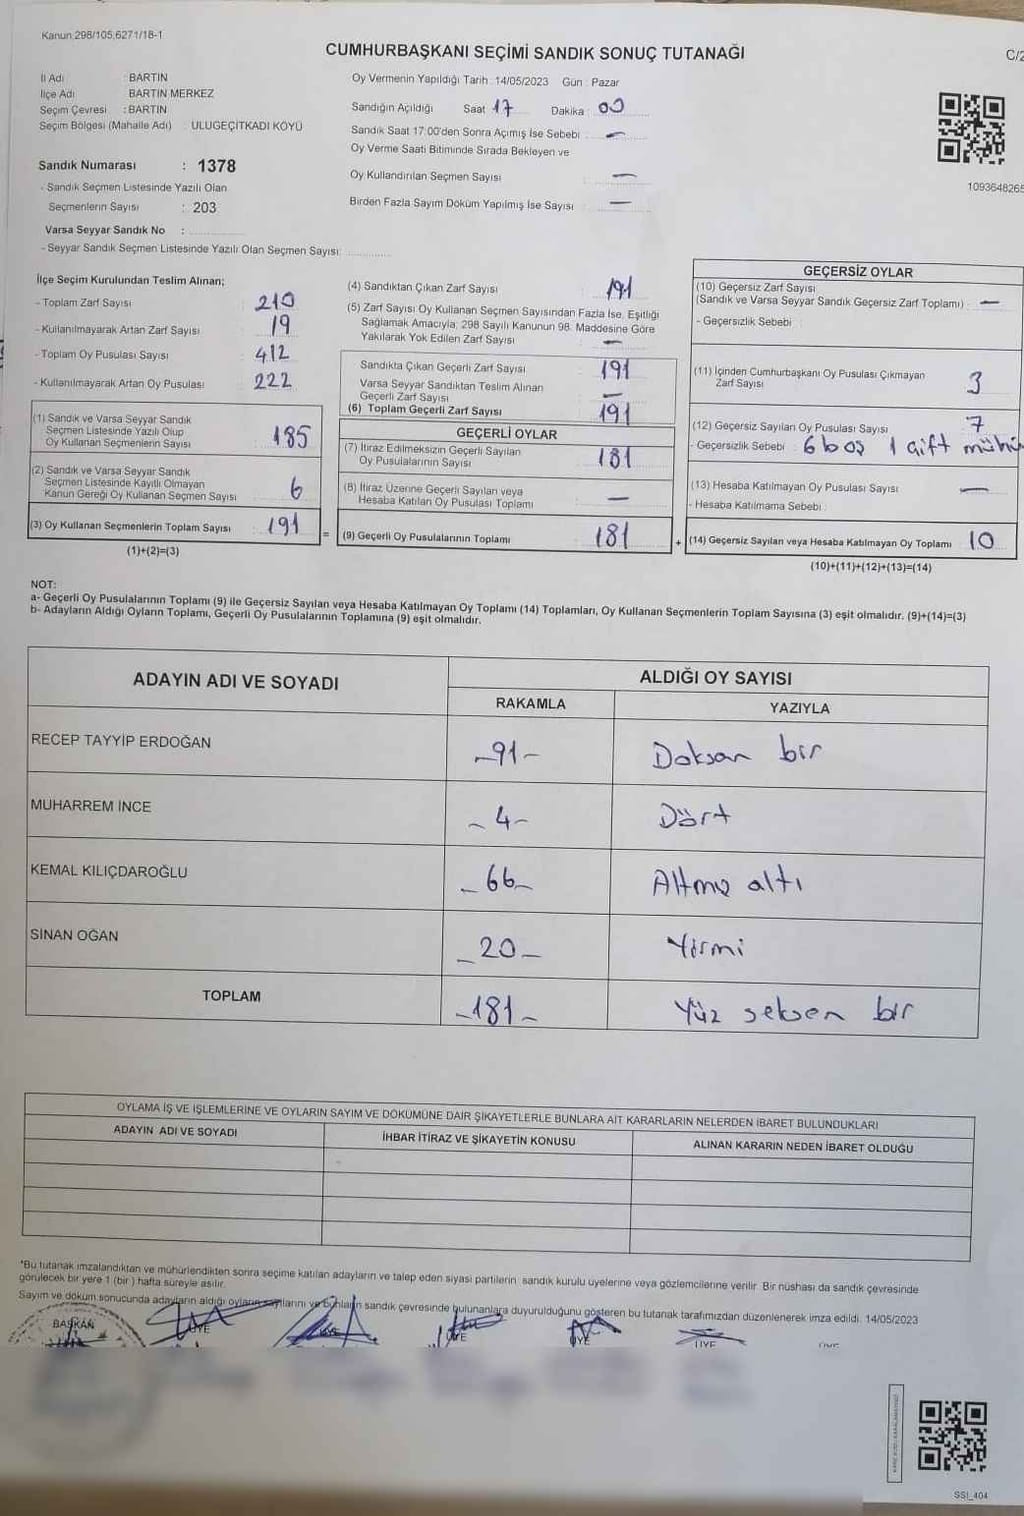 Kanun 298/105,6271/18-1
CUMHURBAŞKANI SEÇİMİ SANDIK SONUÇ TUTANAĞI
C/2
İl Adı : BARTIN
İlçe Adı : BARTIN MERKEZ
Seçim Çevresi : BARTIN
Seçim Bölgesi (Mahalle Adı) : ULUGEÇİTKADI KÖYÜ
Oy Vermenin Yapıldığı Tarih : 14/05/2023 Gün : Pazar
Sandığın Açıldığı Saat 17 Dakika : 00
Sandık Saat 17:00'den Sonra Açımış İse Sebebi : —
Oy Verme Saati Bitiminde Sırada Bekleyen ve
Oy Kullandırılan Seçmen Sayısı : —
Birden Fazla Sayım Döküm Yapılmış İse Sayısı : —
1093648265
Sandık Numarası : 1378
- Sandık Seçmen Listesinde Yazılı Olan
Seçmenlerin Sayısı : 203
Varsa Seyyar Sandık No :
- Seyyar Sandık Seçmen Listesinde Yazılı Olan Seçmen Sayısı:
İlçe Seçim Kurulundan Teslim Alınan;
- Toplam Zarf Sayısı 210
- Kullanılmayarak Artan Zarf Sayısı 19
- Toplam Oy Pusulası Sayısı 412
- Kullanılmayarak Artan Oy Pusulası 222
(1) Sandık ve Varsa Seyyar Sandık
Seçmen Listesinde Yazılı Olup
Oy Kullanan Seçmenlerin Sayısı 185
(2) Sandık ve Varsa Seyyar Sandık
Seçmen Listesinde Kayıtlı Olmayan
Kanun Gereği Oy Kullanan Seçmen Sayısı 6
(3) Oy Kullanan Seçmenlerin Toplam Sayısı 191
(1)+(2)=(3)
(4) Sandıktan Çıkan Zarf Sayısı 191
(5) Zarf Sayısı Oy Kullanan Seçmen Sayısından Fazla İse, Eşitliği
Sağlamak Amacıyla; 298 Sayılı Kanunun 98. Maddesine Göre
Yakılarak Yok Edilen Zarf Sayısı —
Sandıkta Çıkan Geçerli Zarf Sayısı 191
Varsa Seyyar Sandıktan Teslim Alınan
Geçerli Zarf Sayısı —
(6) Toplam Geçerli Zarf Sayısı 191
GEÇERLİ OYLAR
(7) İtiraz Edilmeksizin Geçerli Sayılan
Oy Pusulalarının Sayısı 181
(8) İtiraz Üzerine Geçerli Sayılan veya
Hesaba Katılan Oy Pusulası Toplamı —
= (9) Geçerli Oy Pusulalarının Toplamı 181 +
GEÇERSİZ OYLAR
(10) Geçersiz Zarf Sayısı
(Sandık ve Varsa Seyyar Sandık Geçersiz Zarf Toplamı) : —
- Geçersizlik Sebebi :
(11) İçinden Cumhurbaşkanı Oy Pusulası Çıkmayan
Zarf Sayısı 3
(12) Geçersiz Sayılan Oy Pusulası Sayısı 7
- Geçersizlik Sebebi : 6 boş 1 çift
(13) Hesaba Katılmayan Oy Pusulası Sayısı —
- Hesaba Katılmama Sebebi :
(14) Geçersiz Sayılan veya Hesaba Katılmayan Oy Toplamı 10
(10)+(11)+(12)+(13)=(14)
NOT:
a- Geçerli Oy Pusulalarının Toplamı (9) ile Geçersiz Sayılan veya Hesaba Katılmayan Oy Toplamı (14) Toplamları, Oy Kullanan Seçmenlerin Toplam Sayısına (3) eşit olmalıdır. (9)+(14)=(3)
b- Adayların Aldığı Oyların Toplamı, Geçerli Oy Pusulalarının Toplamına (9) eşit olmalıdır.
ADAYIN ADI VE SOYADI
ALDIĞI OY SAYISI
RAKAMLA YAZIYLA
RECEP TAYYİP ERDOĞAN -91- Doksan bir
MUHARREM İNCE -4- Dört
KEMAL KILIÇDAROĞLU -66- Altmış altı
SİNAN OĞAN -20- Yirmi
TOPLAM -181- Yüz seksen bir
OYLAMA İŞ VE İŞLEMLERİNE VE OYLARIN SAYIM VE DÖKÜMÜNE DAİR ŞİKAYETLERLE BUNLARA AİT KARARLARIN NELERDEN İBARET BULUNDUKLARI
ADAYIN ADI VE SOYADI İHBAR İTİRAZ VE ŞİKAYETİN KONUSU ALINAN KARARIN NEDEN İBARET OLDUĞU
*Bu tutanak imzalandıktan ve mühürlendikten sonra seçime katılan adayların ve talep eden siyasi partilerin sandık kurulu üyelerine veya gözlemcilerine verilir. Bir nüshası da sandık çevresinde
görülecek bir yere 1 (bir) hafta süreyle asılır.
Sayım ve döküm sonucunda adayların aldığı oyların sayılarını ve bunların sandık çevresinde bulunanlara duyurulduğunu gösteren bu tutanak tarafımızdan düzenlenerek imza edildi. 14/05/2023
BAŞKAN ÜYE ÜYE ÜYE ÜYE ÜYE
SSI_404